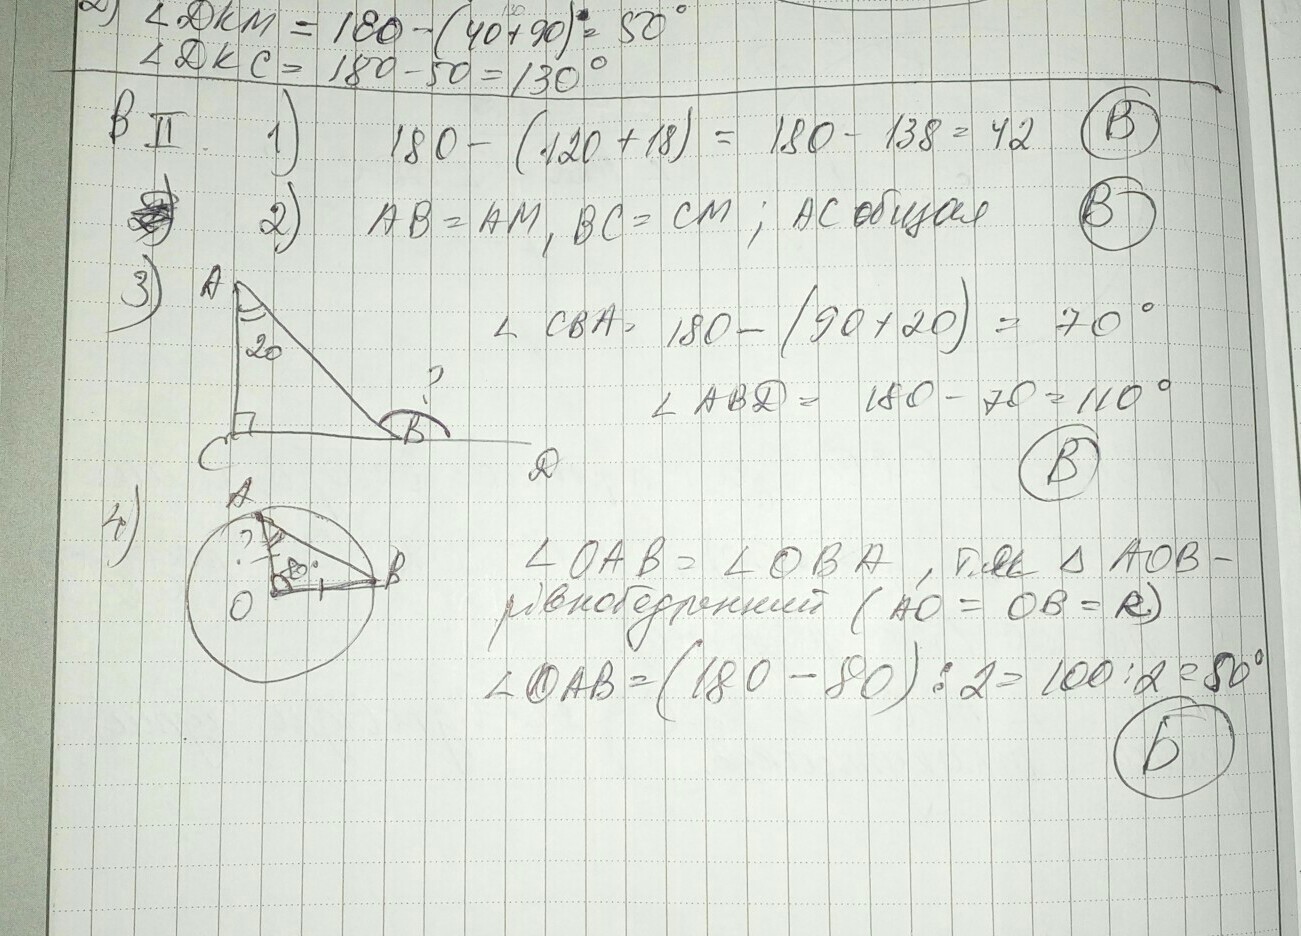 2) ∠DKM = 180-(40+90) = 50°
∠DKC = 180-50 = 130°
В II 1) 180-(120+18) = 180-138 = 42 В
2) AB = AM, BC = CM ; AC общая В
3) A 20 C B ? D
∠ CBA = 180-(90+20) = 70°
∠ ABD = 180-70 = 110°
В
4) A ? 80° O B
∠OAB = ∠OBA , т.як △ AOB -
рівнобедренний (AO = OB = R)
∠OAB = (180-80) : 2 = 100:2 = 50°
Б